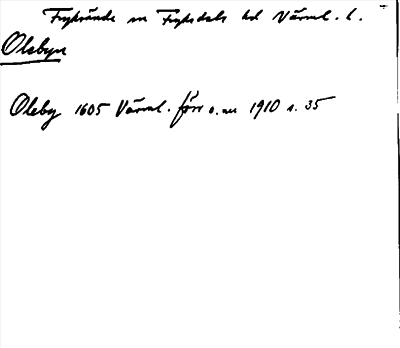 Frykerude sn Fryksdals hd Värml. l.
Olsbyn
Olsby 1605 Värml. förr o. nu 1910 s. 35